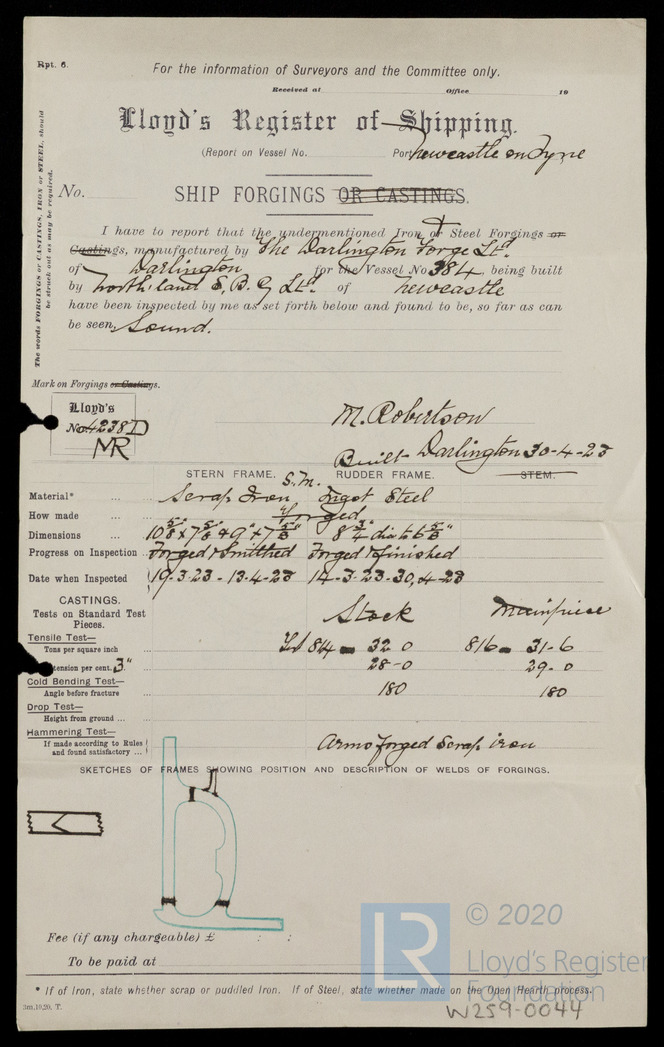 Rpt. 6.
For the information of Surveyors and the Committee only.
Received at Office 19
Lloyd's Register of Shipping.
(Report on Vessel No. Port Newcastle on Tyne
No. SHIP FORGINGS OR CASTINGS.
The words FORGINGS or CASTINGS, IRON or STEEL, should be struck out as may be required.
I have to report that the undermentioned Iron or Steel Forgings or
Castings, manufactured by The Darlington Forge Ltd
of Darlington for the Vessel No 384, being built
by North'land S. B. Co Ltd. of Newcastle
have been inspected by me as set forth below and found to be, so far as can
be seen, Sound.
Mark on Forgings or Castings.
Lloyd's
No 4238 D
MR
M. Robertson
Built Darlington 30-4-23
STERN FRAME. S.M. RUDDER FRAME. STEM.
Material* Scrap Iron Ingot Steel
How made forged
Dimensions 10 5/8 x 7 5/8 & 9" x 7 5/8" 8 3/4 dia to 6 5/8"
Progress on Inspection Forged & Smithed Forged & finished
Date when Inspected 19-3-23 - 13-4-23 14-3-23-30,4-23
CASTINGS.
Tests on Standard Test
Pieces.
Stock Mainpiece
Tensile Test—
Tons per square inch 814 - 32-0 816 - 31-6
tension per cent. 3" 28-0 29-0
Cold Bending Test—
Angle before fracture 180 180
Drop Test—
Height from ground
Hammering Test—
If made according to Rules
and found satisfactory
Arms forged Scrap iron
SKETCHES OF FRAMES SHOWING POSITION AND DESCRIPTION OF WELDS OF FORGINGS.
Fee (if any chargeable) £ : :
To be paid at
* If of Iron, state whether scrap or puddled Iron. If of Steel, state whether made on the Open Hearth process.
3m,10,20, T.
LR
© 2020
Lloyd's Register
Foundation
W259-0044